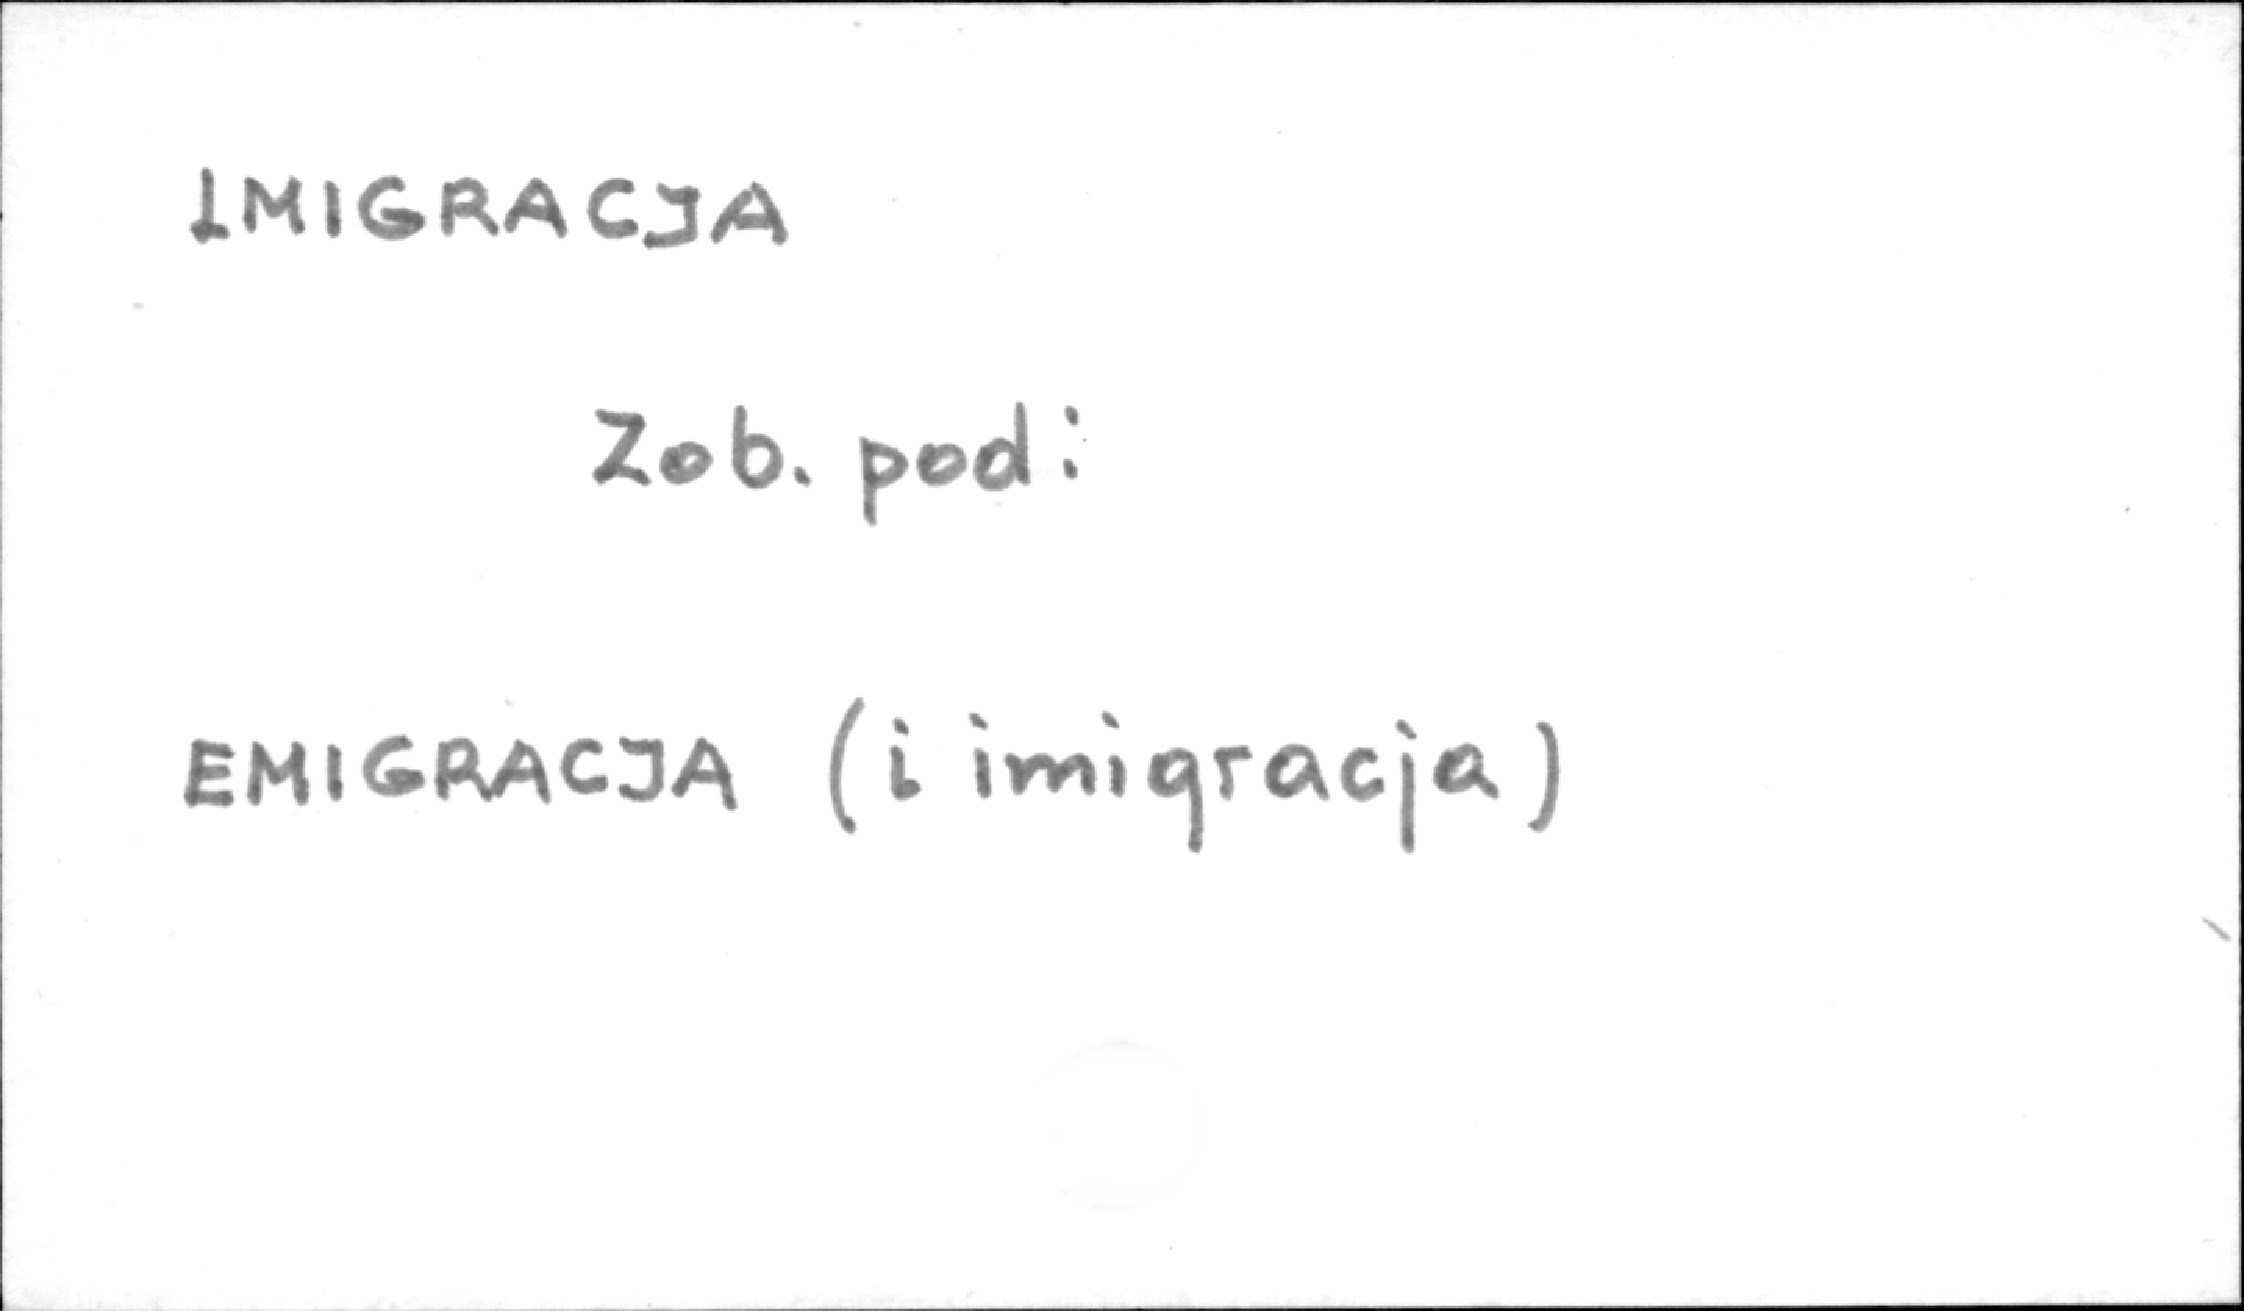 IMIGRACJA
Zob. pod:
EMIGRACJA (i imigracja)